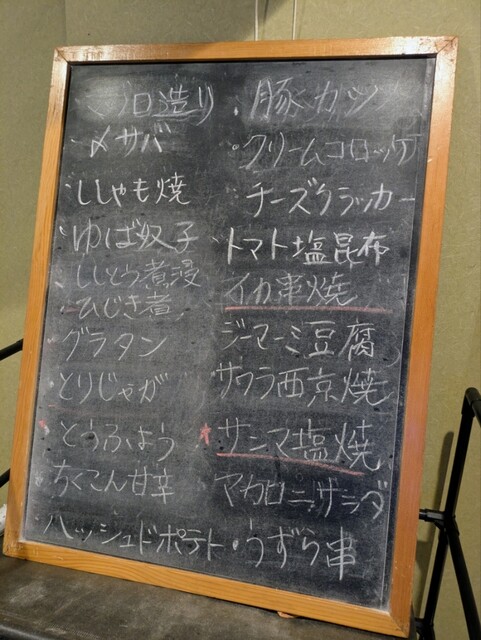 マグロ造り
〆サバ
ししゃも焼
ゆば奴子
ししとう煮浸
ひじき煮
グラタン
とりじゃが
とうふよう
ちくこん甘辛
ハッシュドポテト
豚カツ
クリームコロッケ
チーズクラッカー
トマト塩昆布
イカ串焼
ジーマーミ豆腐
サワラ西京焼
サンマ塩焼
マカロニサラダ
うずら串